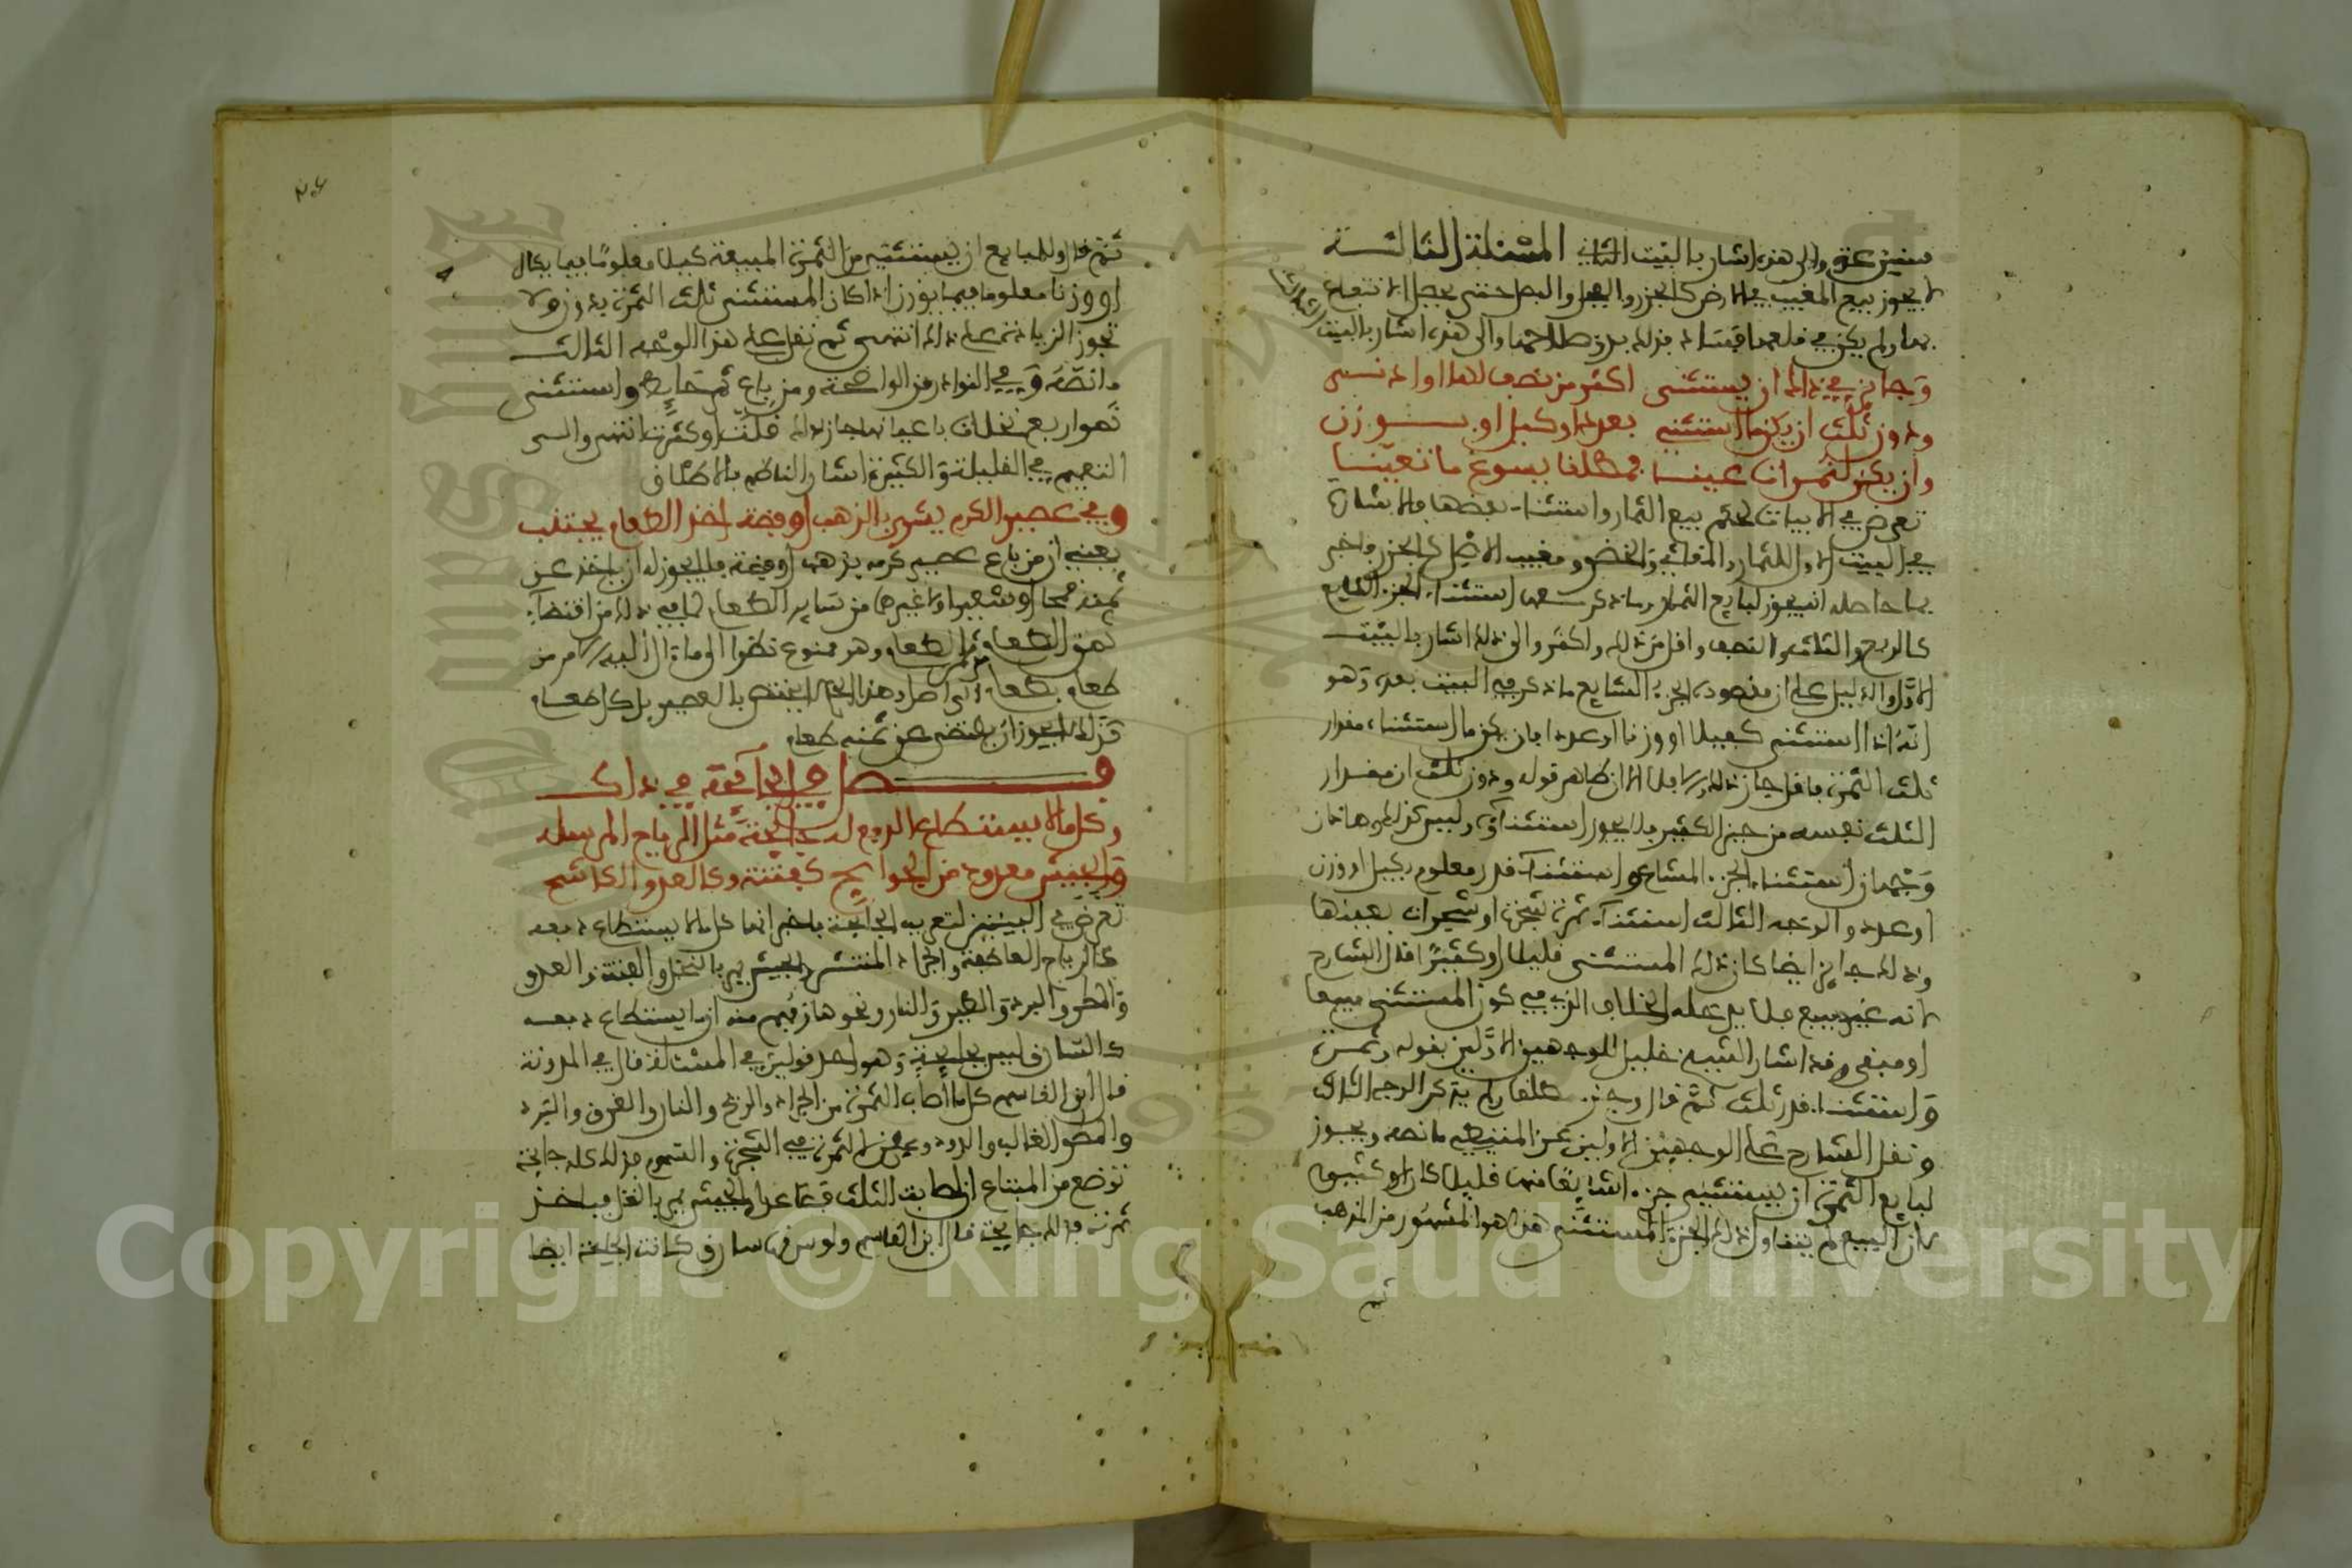 سنين عقد والى هذه اشار بالبيت الثاني المسئلة الثالثة
لا يجوز بيع المغيب في الارض كالجزر والفجل والبصل حتى يحصل الانتفاع
بها ولم يكن في قلعها فساد فذلك بدو صلاحها والى هذه اشار بالبيت
الثالث
وجايز في ذاك ان يستثنى اكثر من نصف لها او ادنى
ودون ثلث ان يكن ما استثني بعدد او كيل او بوزن
وان يكن لثمرات عينا فمطلقا يسوغ ما تعينا
تعرض في الابيات لحكم بيع الثمار واستثناء بعضها فالاشارة
في البيت الاول للثمار والمقاثي والخضر ومغيب الاصل كالجزر واخبر
بما حاصله انه يجوز لبايع الثمار وما ذكر معها استثناء الجزء الشايع
كالربع والثلث والنصف واقل من ذلك واكثر والى ذلك اشار بالبيت
الاول والدليل على ان مقصوده الجزء الشايع ما ذكر في البيت بعده وهو
انه اذا استثنى كيلا او وزنا او عددا بان يكن ما استثناه مقدار
ثلث الثمرة فاقل جاز ذلك والا فلا الا ان ظاهر قوله ودون ثلث ان مقدار
الثلث نفسه من حيز الكثير فلا يجوز استثناؤه وليس كذلك وهاذان
وجهان استثناء الجزء المشاع واستثناء قدر معلوم بكيل او وزن
او عدد والوجه الثالث استثناء ثمرة شجرة او شجرات بعينها
وذلك جايز ايضا كان ذلك المستثنى قليلا او كثيرا قال الشارح
لانه غير مبيع فلا يدخله الخلاف الذي في كون المستثنى مبيعا
او مبقى وقد اشار الشيخ خليل للوجهين الاولين بقوله وثمرة
واستثناء قدر ثلث ثم قال وجزء مطلقا ولم يذكر الوجه الثالث
ونقل الشارح على الوجهين الاولين عن المتيطي ما نصه ويجوز
لبايع الثمرة ان يستثني جزءا شايعا منها قليلا كان او كثيرا
لان البيع لم يتناول ذلك الجزء المستثنى هذا هو المشهور من المذهب
ثم
ثم قال وللبايع ان يستثني من الثمرة المبيعة كيلا معلوما فيما يكال
او وزنا معلوما فيما يوزن اذا كان المستثنى ثلث الثمرة فدون ولا
تجوز الزيادة على ذلك انتهى ثم نقل على هذا الوجه الثالث
ما نصه وفي النوادر من الواضحة ومن باع ثمر حايطه واستثنى
نحو اربع نخلات باعيانها جاز ذلك قلت او كثرت انتهى والى
التعميم في القليلة والكثيرة اشار الناظم بالاطلاق
وفي عصير الكرم يشرى بالذهب او فضة اخذ الطعام يجتنب
يعني ان من باع عصير كرمه بذهب او فضة فلا يجوز له ان ياخذ عن
ثمنه قمحا او شعيرا او غيرهما من ساير الطعام لما في ذلك من اقتضاء
ثمن الطعام من الطعام وهو ممنوع نظرا الى ما ءال اليه الامر من
طعام بطعام الى اجل وهذا الحكم لا يختص بالعصير بل كل طعام
كذلك لا يجوز ان يقتضى عن ثمنه طعام
فصل في الجايحة في ذاك
وكل ما لا يستطاع الدفع له جايحة مثل الرياح المرسله
والجيش معدود من الجوايح كفتنة وكالعدو الكاشح
تعرض في البيتين لتعريف الجايحة فاخبر انها كل ما لا يستطاع دفعه
كالرياح العاصفة والجراد المنتشر والجيش يمر بالنخل والفتنة والعدو
والمطر والبرد والطير والنار ونحوها ففهم منه ان ما يستطاع دفعه
كالسارق ليس بجايحة وهو احد قولين في المسئلة قال في المدونة
قال ابن القاسم كل ما اصاب الثمرة من الجراد والريح والنار والغرق والبرد
والمطر الغالب والدود وعفن الثمرة في الشجرة والسموم فذلك كله جايحة
توضع من المبتاع ان اصابت الثلث فصاعدا والجيش يمر بالنخل فياخذ
ثمرته فذلك جايحة قال ابن القاسم ولو سرقها سارق كانت جايحة ايضا